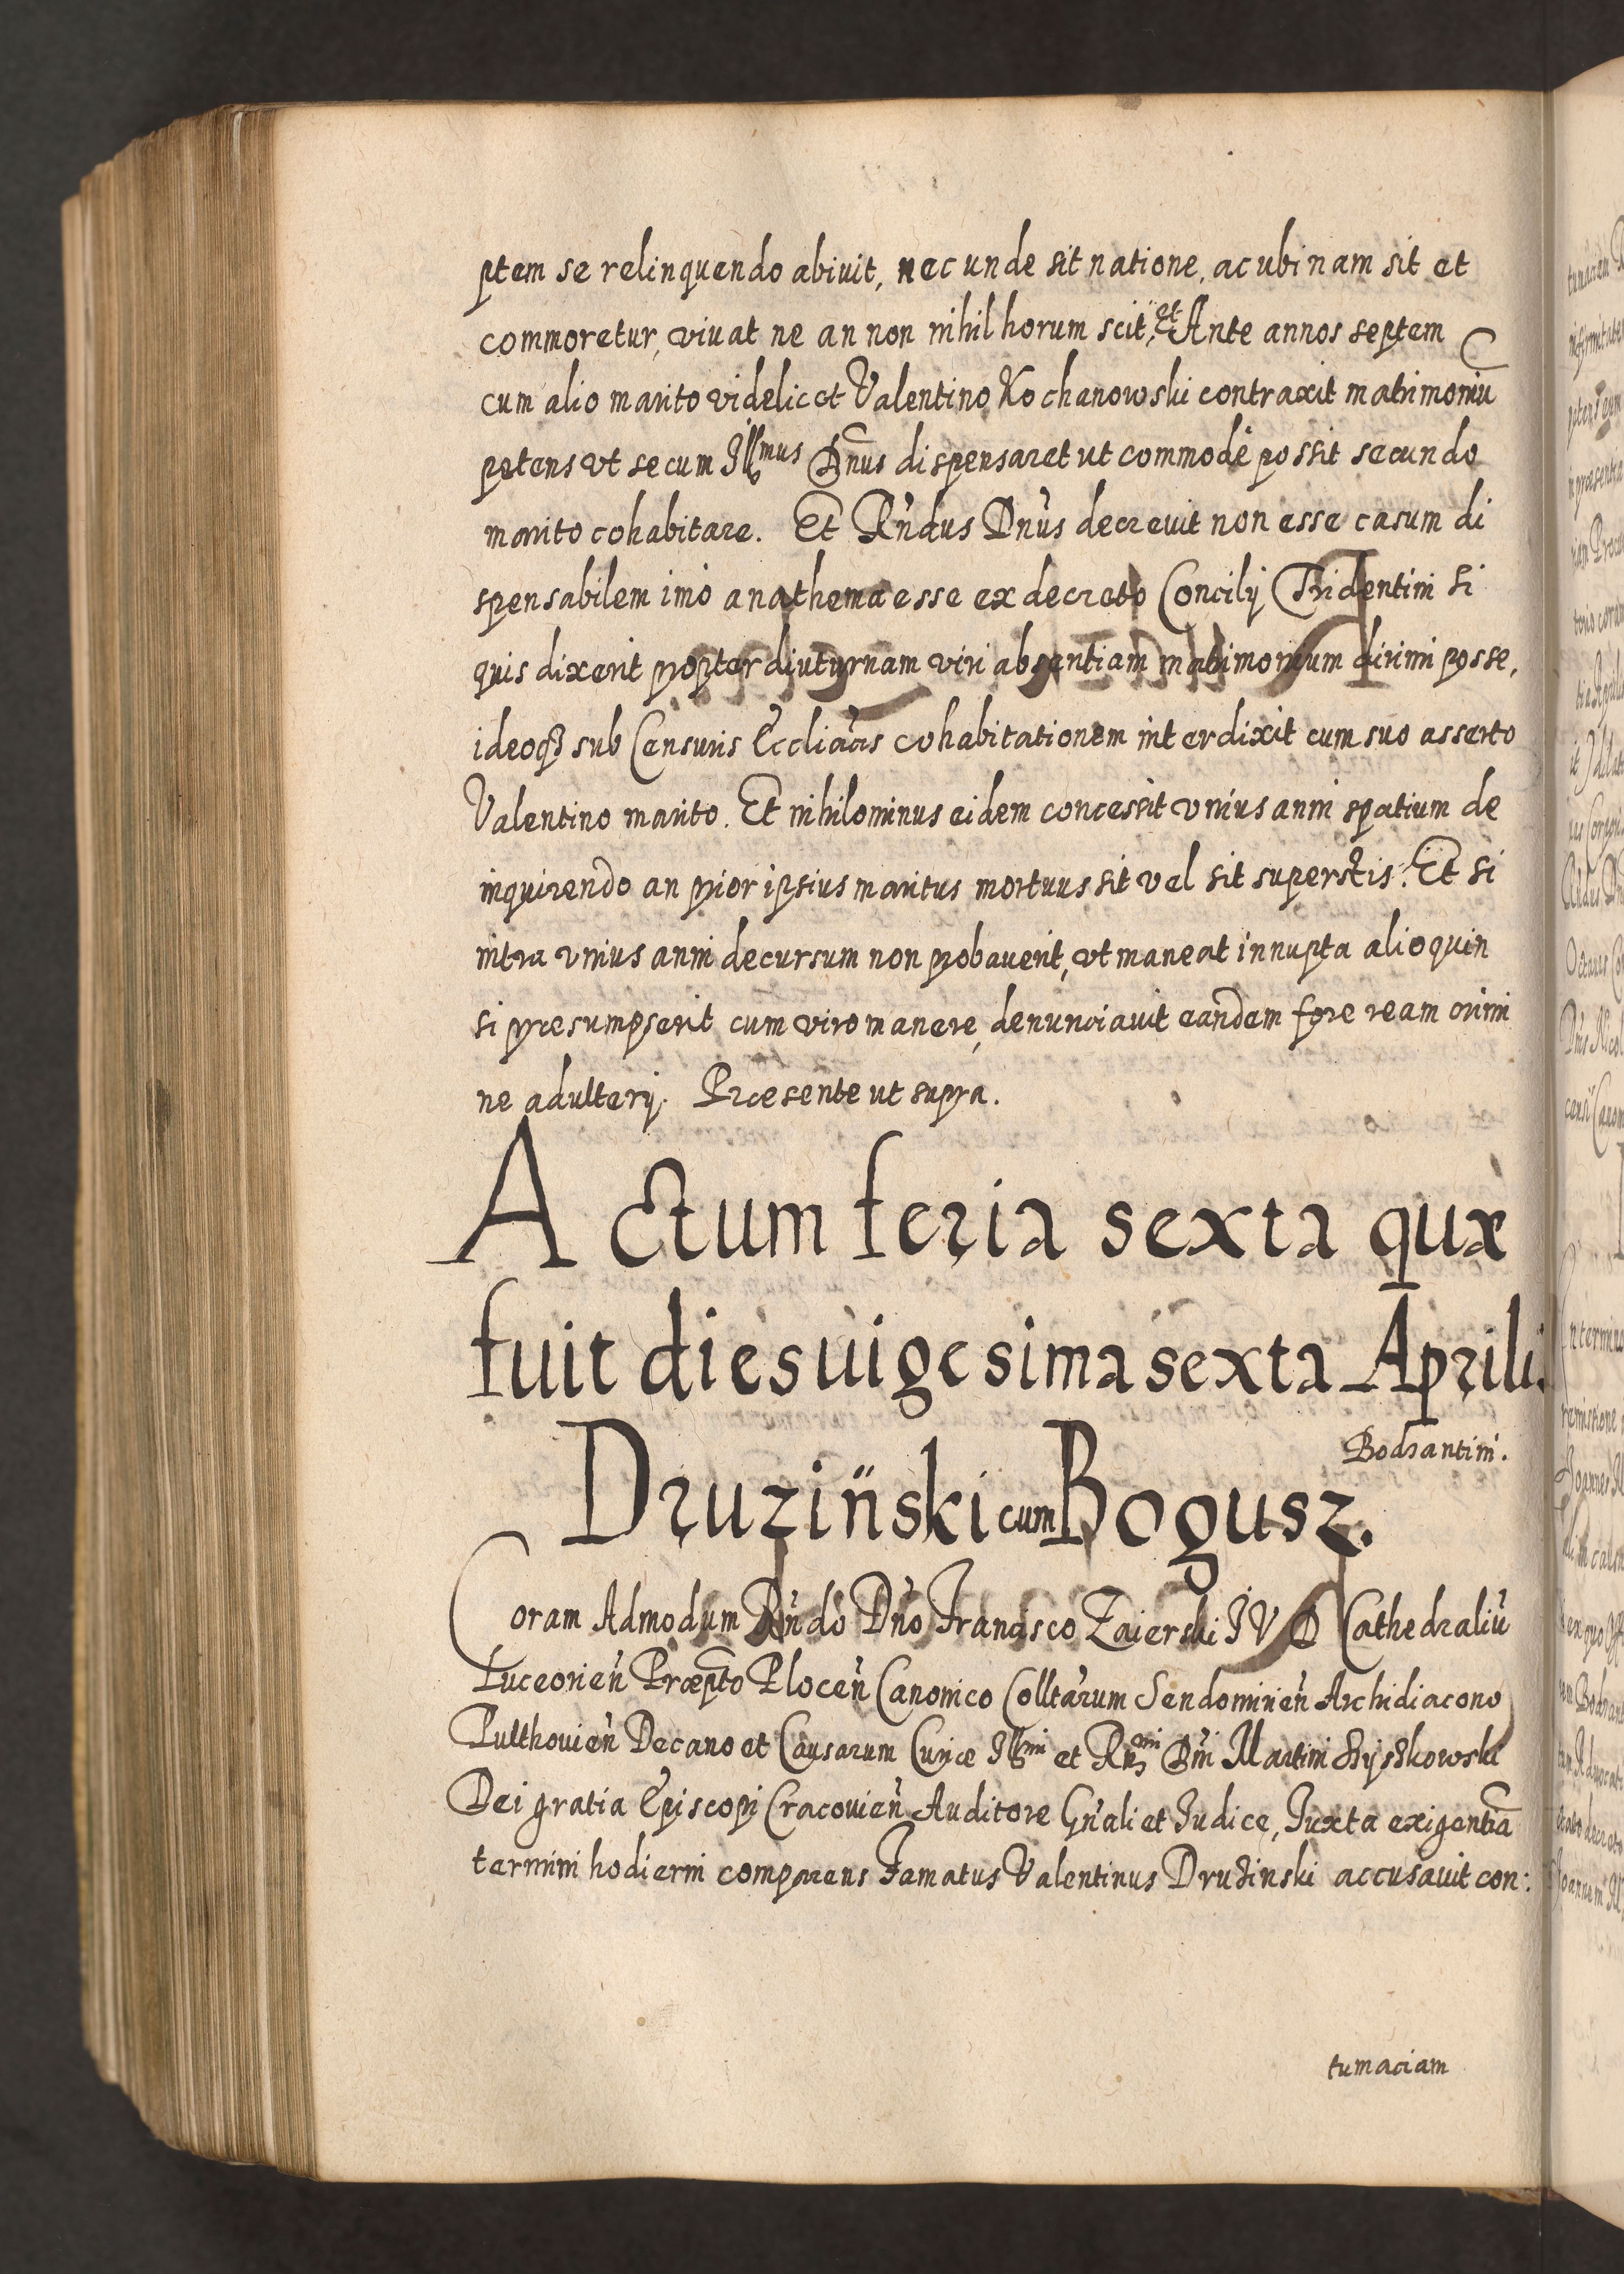 ptem se relinquendo abiuit, nec unde sit natione, ac ubinam sit et
commoretur, viuat ne an non nihil horum scit, et Ante annos septem
cum alio marito videlicet Valentino Kochanowski contraxit matrimoniũ
petens vt secum Illmus Dnus dispensaret ut commodè possit secundo
marito cohabitare. Et Rndus Dnus decreuit non esse casum di
spensabilem imò anathema esse ex decreto Concilij Tridentini si
quis dixerit propter diuturnam viri absentiam matrimonium dirimi posse,
ideoq3 sub Censuris Eccliacis cohabitationem interdixit cum suo asserto
Valentino marito. Et nihilominus eidem concessit vnius anni spatium de
inquirendo an prior ipsius maritus mortuus sit vel sit superstis: Et si
intra vnius anni decursum non probauerit, vt maneat innupta alioquin
si præsumpserit cum viro manere, denunciauit eandem fore ream crimi
ne adulterij. Præsente ut supra.
Actum feria sexta quæ
fuit dies uigesima sexta Aprilis
Bodzantini.
Druziński cum Bogusz.
Coram Admodum Rndo Dno Francisco Zaierski I V D Cathedraliũ
Luceorien Præpto Plocen Canonico Colltarum Sendomirien Archidiacono
Pulthouien Decano et Causarum Curiæ Illmi et Rndmi Dni Martini Szyszkowski
Dei gratia Episcopi Cracouien Auditore Gnali et Iudice, Iuxta exigentiã
termini hodierni comparens Famatus Valentinus Druzinski accusauit con:
tumaciam